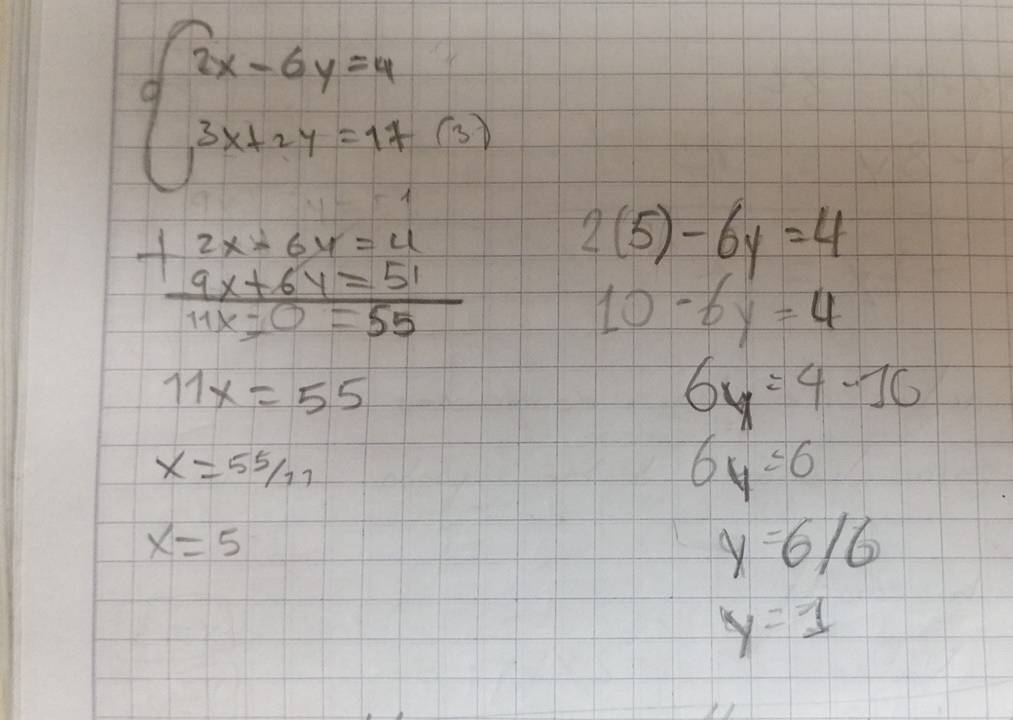 2x - 6y = 4
3x + 2y = 17 (3)
+ 2x - 6y = 4
9x + 6y = 51
11x = 0 = 55
11x = 55
x = 55/11
x = 5
2(5) - 6y = 4
10 - 6y = 4
6y = 4 - 10
6y = 6
y = 6/6
y = 1